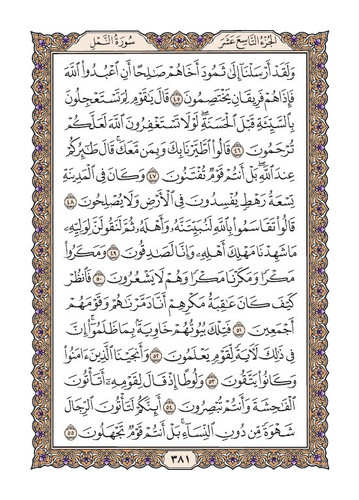 الجزء التاسع عشر سورة النمل
وَلَقَدْ أَرْسَلْنَآ إِلَىٰ ثَمُودَ أَخَاهُمْ صَٰلِحًا أَنِ ٱعْبُدُوا۟ ٱللَّهَ
فَإِذَا هُمْ فَرِيقَانِ يَخْتَصِمُونَ ٤٥ قَالَ يَٰقَوْمِ لِمَ تَسْتَعْجِلُونَ
بِٱلسَّيِّئَةِ قَبْلَ ٱلْحَسَنَةِ ۖ لَوْلَا تَسْتَغْفِرُونَ ٱللَّهَ لَعَلَّكُمْ
تُرْحَمُونَ ٤٦ قَالُوا۟ ٱطَّيَّرْنَا بِكَ وَبِمَن مَّعَكَ ۚ قَالَ طَٰٓئِرُكُمْ
عِندَ ٱللَّهِ ۖ بَلْ أَنتُمْ قَوْمٌ تُفْتَنُونَ ٤٧ وَكَانَ فِى ٱلْمَدِينَةِ
تِسْعَةُ رَهْطٍ يُفْسِدُونَ فِى ٱلْأَرْضِ وَلَا يُصْلِحُونَ ٤٨
قَالُوا۟ تَقَاسَمُوا۟ بِٱللَّهِ لَنُبَيِّتَنَّهُۥ وَأَهْلَهُۥ ثُمَّ لَنَقُولَنَّ لِوَلِيِّهِۦ
مَا شَهِدْنَا مَهْلِكَ أَهْلِهِۦ وَإِنَّا لَصَٰدِقُونَ ٤٩ وَمَكَرُوا۟
مَكْرًا وَمَكَرْنَا مَكْرًا وَهُمْ لَا يَشْعُرُونَ ٥٠ فَٱنظُرْ
كَيْفَ كَانَ عَٰقِبَةُ مَكْرِهِمْ أَنَّا دَمَّرْنَٰهُمْ وَقَوْمَهُمْ
أَجْمَعِينَ ٥١ فَتِلْكَ بُيُوتُهُمْ خَاوِيَةًۢ بِمَا ظَلَمُوٓا۟ ۗ إِنَّ
فِى ذَٰلِكَ لَءَايَةً لِّقَوْمٍ يَعْلَمُونَ ٥٢ وَأَنجَيْنَا ٱلَّذِينَ ءَامَنُوا۟
وَكَانُوا۟ يَتَّقُونَ ٥٣ وَلُوطًا إِذْ قَالَ لِقَوْمِهِۦٓ أَتَأْتُونَ
ٱلْفَٰحِشَةَ وَأَنتُمْ تُبْصِرُونَ ٥٤ أَئِنَّكُمْ لَتَأْتُونَ ٱلرِّجَالَ
شَهْوَةً مِّن دُونِ ٱلنِّسَآءِ ۚ بَلْ أَنتُمْ قَوْمٌ تَجْهَلُونَ ٥٥
٣٨١